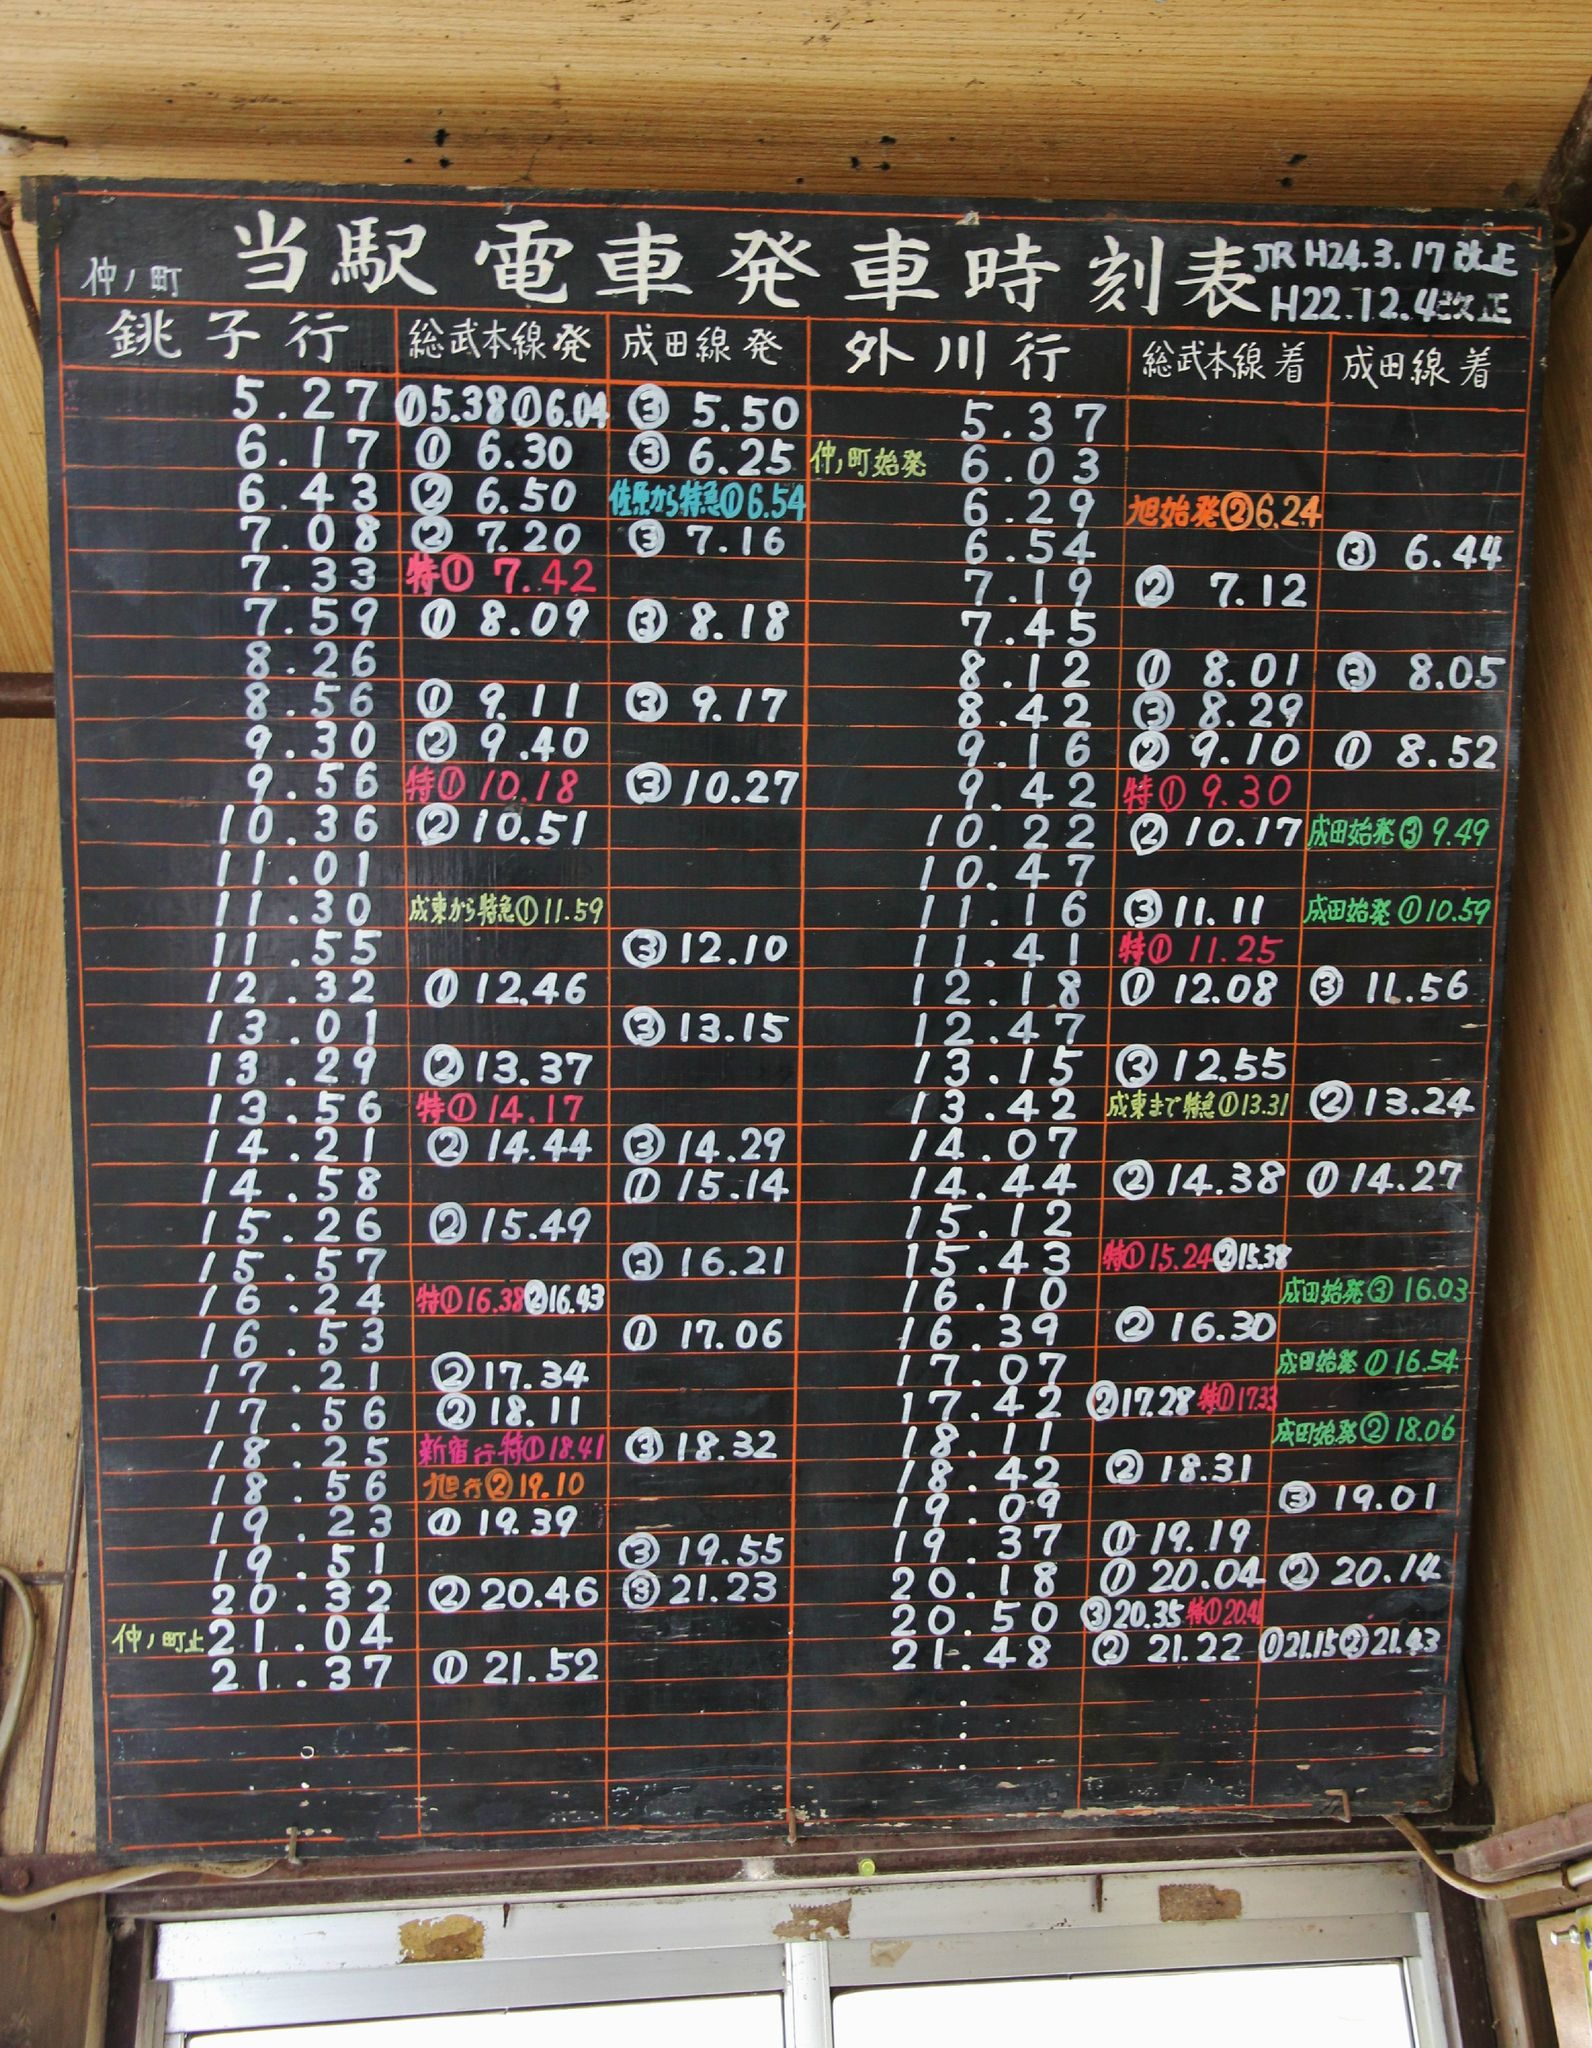 当駅電車発車時刻表 JR H24.3.17改正
仲ノ町 H22.12.4改正
銚子行 総武本線発 成田線発 外川行 総武本線着 成田線着
5.27 ①5.38①6.04 ③5.50 5.37
6.17 ①6.30 ③6.25 仲ノ町始発 6.03
6.43 ②6.50 佐原から特急①6.54 6.29 旭始発②6.24
7.08 ②7.20 ③7.16 6.54 ③6.44
7.33 特①7.42 7.19 ②7.12
7.59 ①8.09 ③8.18 7.45
8.26 8.12 ①8.01 ③8.05
8.56 ①9.11 ③9.17 8.42 ③8.29
9.30 ②9.40 9.16 ②9.10 ①8.52
9.56 特①10.18 ③10.27 9.42 特①9.30
10.36 ②10.51 10.22 ②10.17 成田始発③9.49
11.01 10.47
11.30 成東から特急①11.59 11.16 ③11.11 成田始発①10.59
11.55 ③12.10 11.41 特①11.25
12.32 ①12.46 12.18 ①12.08 ③11.56
13.01 ③13.15 12.47
13.29 ②13.37 13.15 ③12.55
13.56 特①14.17 13.42 成東まで特急①13.31 ②13.24
14.21 ②14.44 ③14.29 14.07
14.58 ①15.14 14.44 ②14.38 ①14.27
15.26 ②15.49 15.12
15.57 ③16.21 15.43 特①15.24②15.38
16.24 特①16.38②16.43 16.10 成田始発③16.03
16.53 ①17.06 16.39 ②16.30
17.21 ②17.34 17.07 成田始発①16.54
17.56 ②18.11 17.42 ②17.28特①17.33
18.25 新宿行特①18.41 ③18.32 18.11 成田始発②18.06
18.56 旭行②19.10 18.42 ②18.31
19.23 ①19.39 19.09 ③19.01
19.51 ③19.55 19.37 ①19.19
20.32 ②20.46 ③21.23 20.18 ①20.04 ②20.14
仲ノ町止21.04 20.50 ③20.35特①20.41
21.37 ①21.52 21.48 ②21.22 ①21.15②21.43